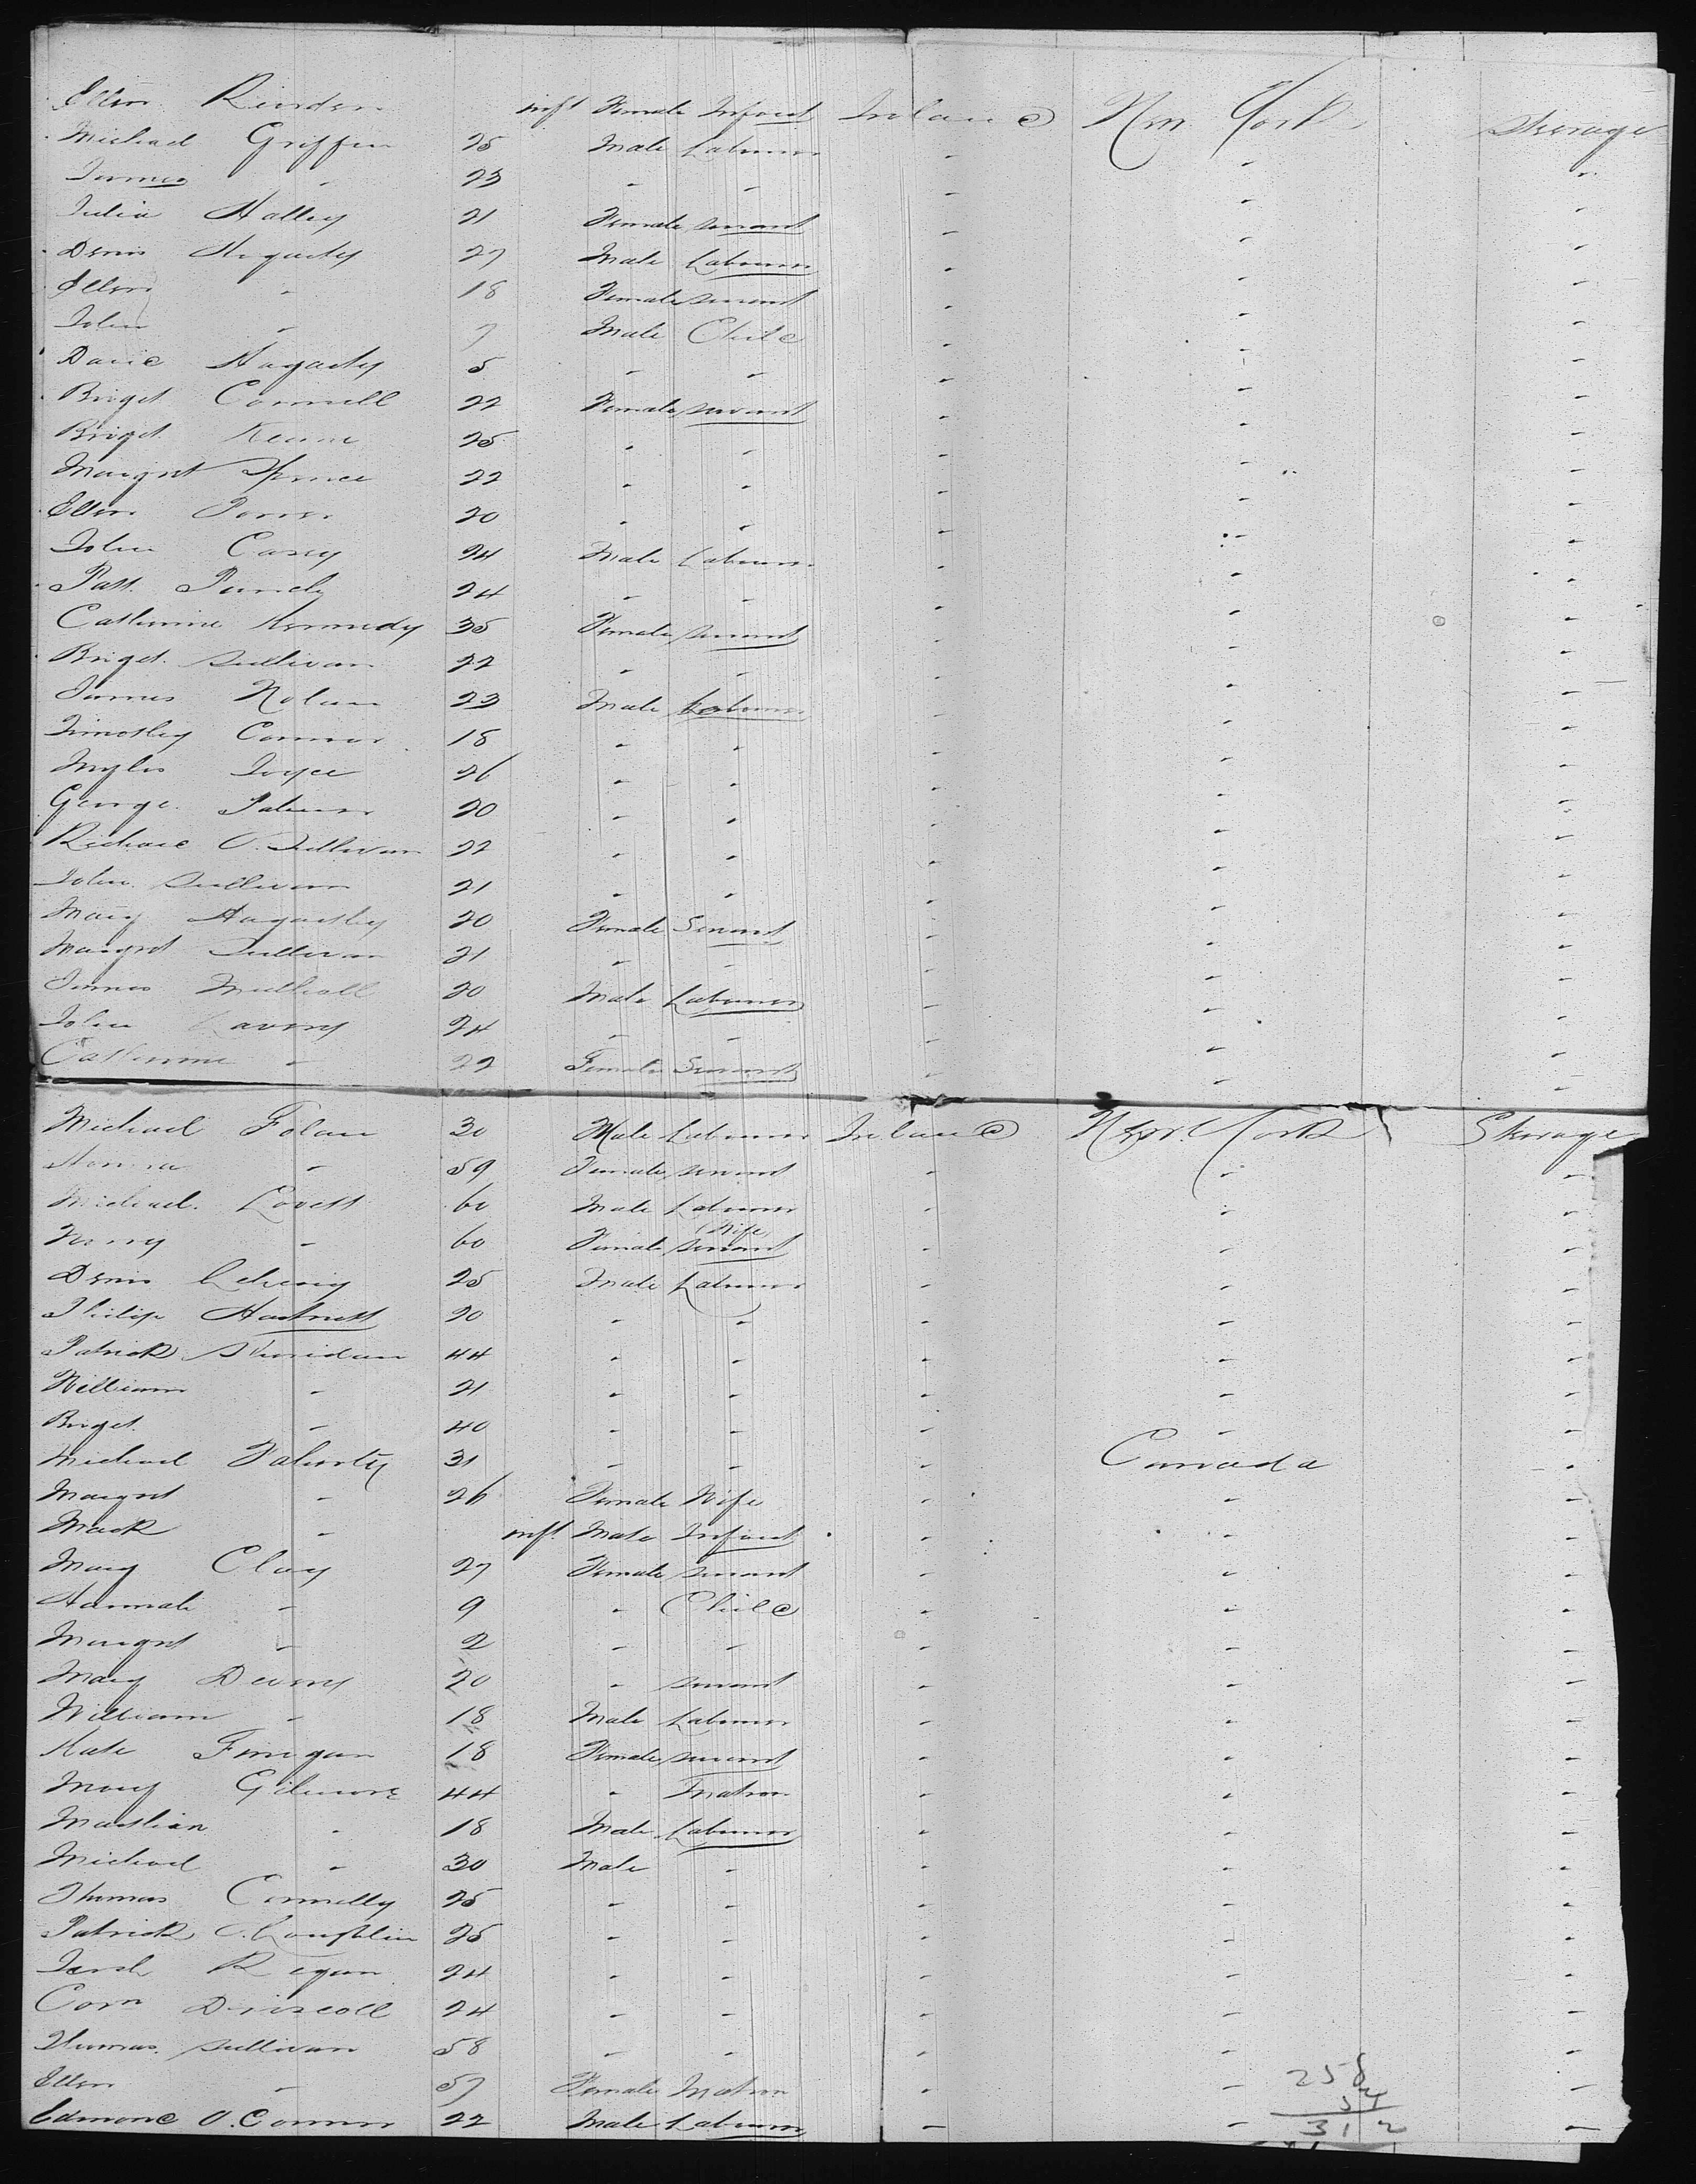 Ellen Rearden inft Female Infant Ireland New York Steerage
Michael Griffin 25 Male Labourer - - -
James - 23 - - - - -
Julia Halley 21 Female Servant - - -
Denis Hegarty 27 Male Labourer - - -
Ellen - 18 Female Servant - - -
John - 7 Male Child - - -
David Hagarty 5 - - - - -
Briget Connell 22 Female Servant - - -
Briget Keane 25 - - - - -
Margret Spruce 22 - - - - -
Ellen Power 20 - - - - -
John Casey 24 Male Labourer - - -
Patt. 24 - - - - -
Catherine Kennedy 35 Female Servant - - -
Briget Sullivan 22 - - - - -
James Nolan 23 Male Labourer - - -
Timothy Connor 18 - - - - -
Myles Joyce 26 - - - - -
George Palmer 20 - - - - -
Richard O. Sullivan 22 - - - - -
John Sullivan 21 - - - - -
Mary Hagarthy 20 Female Servant - - -
Margret Sullivan 21 - - - - -
James Mulhall 20 Male Labourer - - -
John Lavery 24 - - - - -
Catherine - 22 Female Servant - - -
Michael Folan 30 Male Labourer Ireland New York Steerage
Honora - 59 Female Servant - - -
Michael Lovett 60 Male Labourer - - -
Wife
- 60 Female Servant - - -
Denis 25 Male Labourer - - -
Philip Hartnett 20 - - - - -
Patrick Sheridan 44 - - - - -
William - 21 - - - - -
Briget - 40 - - - - -
Michael Faherty 31 - - - Canada -
Margret - 26 Female Wife - - -
Mack - inft Male Infant - - -
Mary Cloy 27 Female Servant - - -
Hannah - 9 - Child - - -
Margret - 2 - - - - -
Mary Deveny 20 - Servant - - -
William - 18 Male Labourer - - -
Kate Finegan 18 Female Servant - - -
Mary Gilmore 44 - Matron - - -
- 18 Male Labourer - - -
Michael - 30 Male - - - -
Thomas Connelly 25 - - - - -
Patrick O.Loughlin 25 - - - - -
Regan 24 - - - - -
Corn Driscoll 24 - - - - -
Thomas Sullivan 58 - - - - -
Ellen - 57 Female Matron - - -
Edmond O.Connor 22 Male Labourer - - -
258
54
312